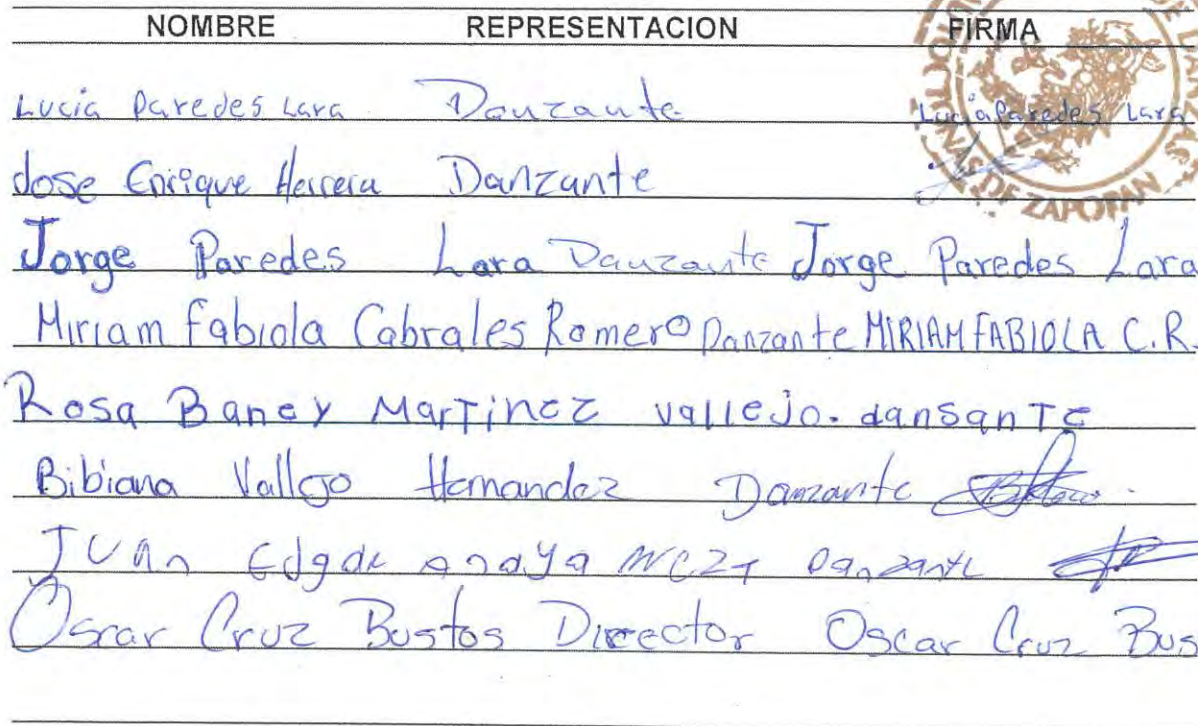 NOMBRE REPRESENTACION FIRMA
Lucia Paredes Lara Danzante Lucia Paredes Lara
Jose Enrique Herrera Danzante
Jorge Paredes Lara Danzante Jorge Paredes Lara
Miriam Fabiola Cabrales Romero Danzante MIRIAM FABIOLA C.R.
Rosa Baney Martinez Vallejo. dansante
Bibiana Vallejo Hernandez Danzante
Juan Edgar Anaya Danzante
Oscar Cruz Bustos Director Oscar Cruz Bus
DE ZAPOPAN